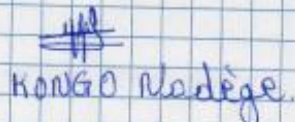 KONGO Nadège.